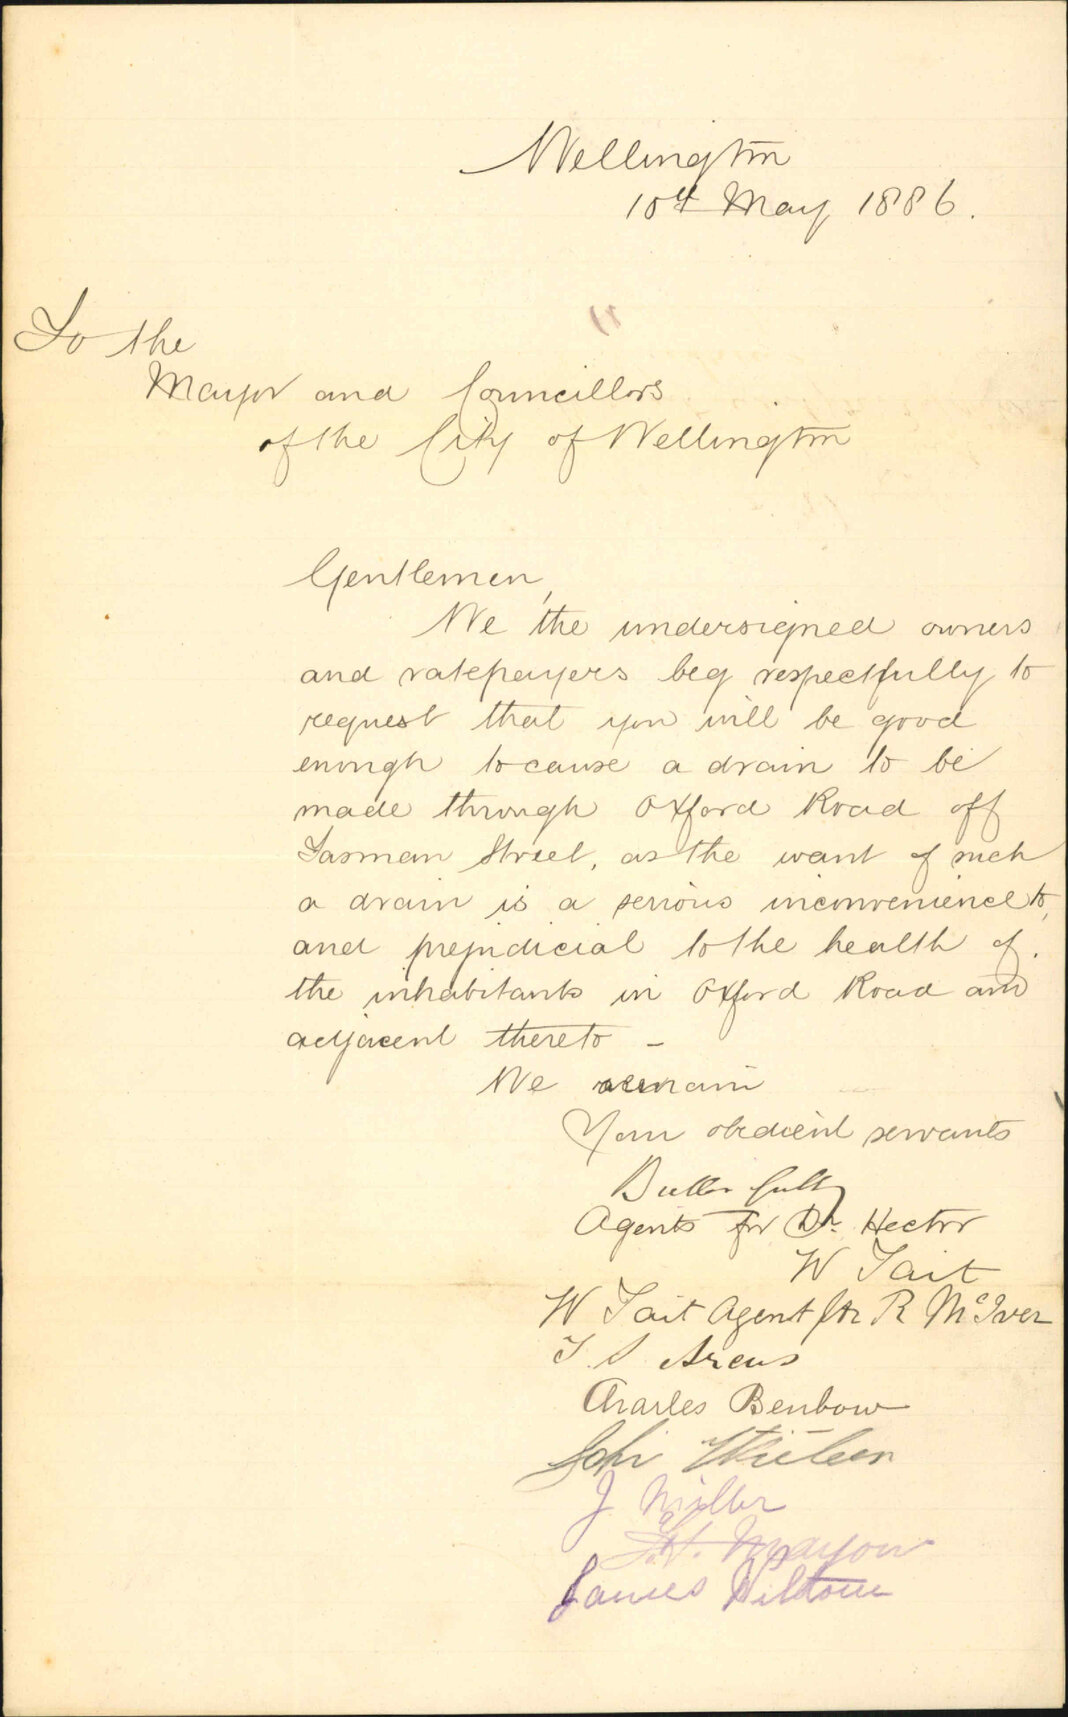 Wellington
10th May 1886.
To the
Mayor and Councillors
of the City of Wellington
Gentlemen,
We the undersigned owners
and ratepayers beg respectfully to
request that you will be good
enough to cause a drain to be
made through Oxford Road off
Tasman Street, as the want of such
a drain is a serious inconvenience to,
and prejudicial to the health of
the inhabitants in Oxford Road and
adjacent thereto -
We remain
Your obedient servants
Agents for Dr Hector
W Tait
W Tait Agent for R McIver
T S Arcus
Charles Benbow
John
J Miller
Mayow
James